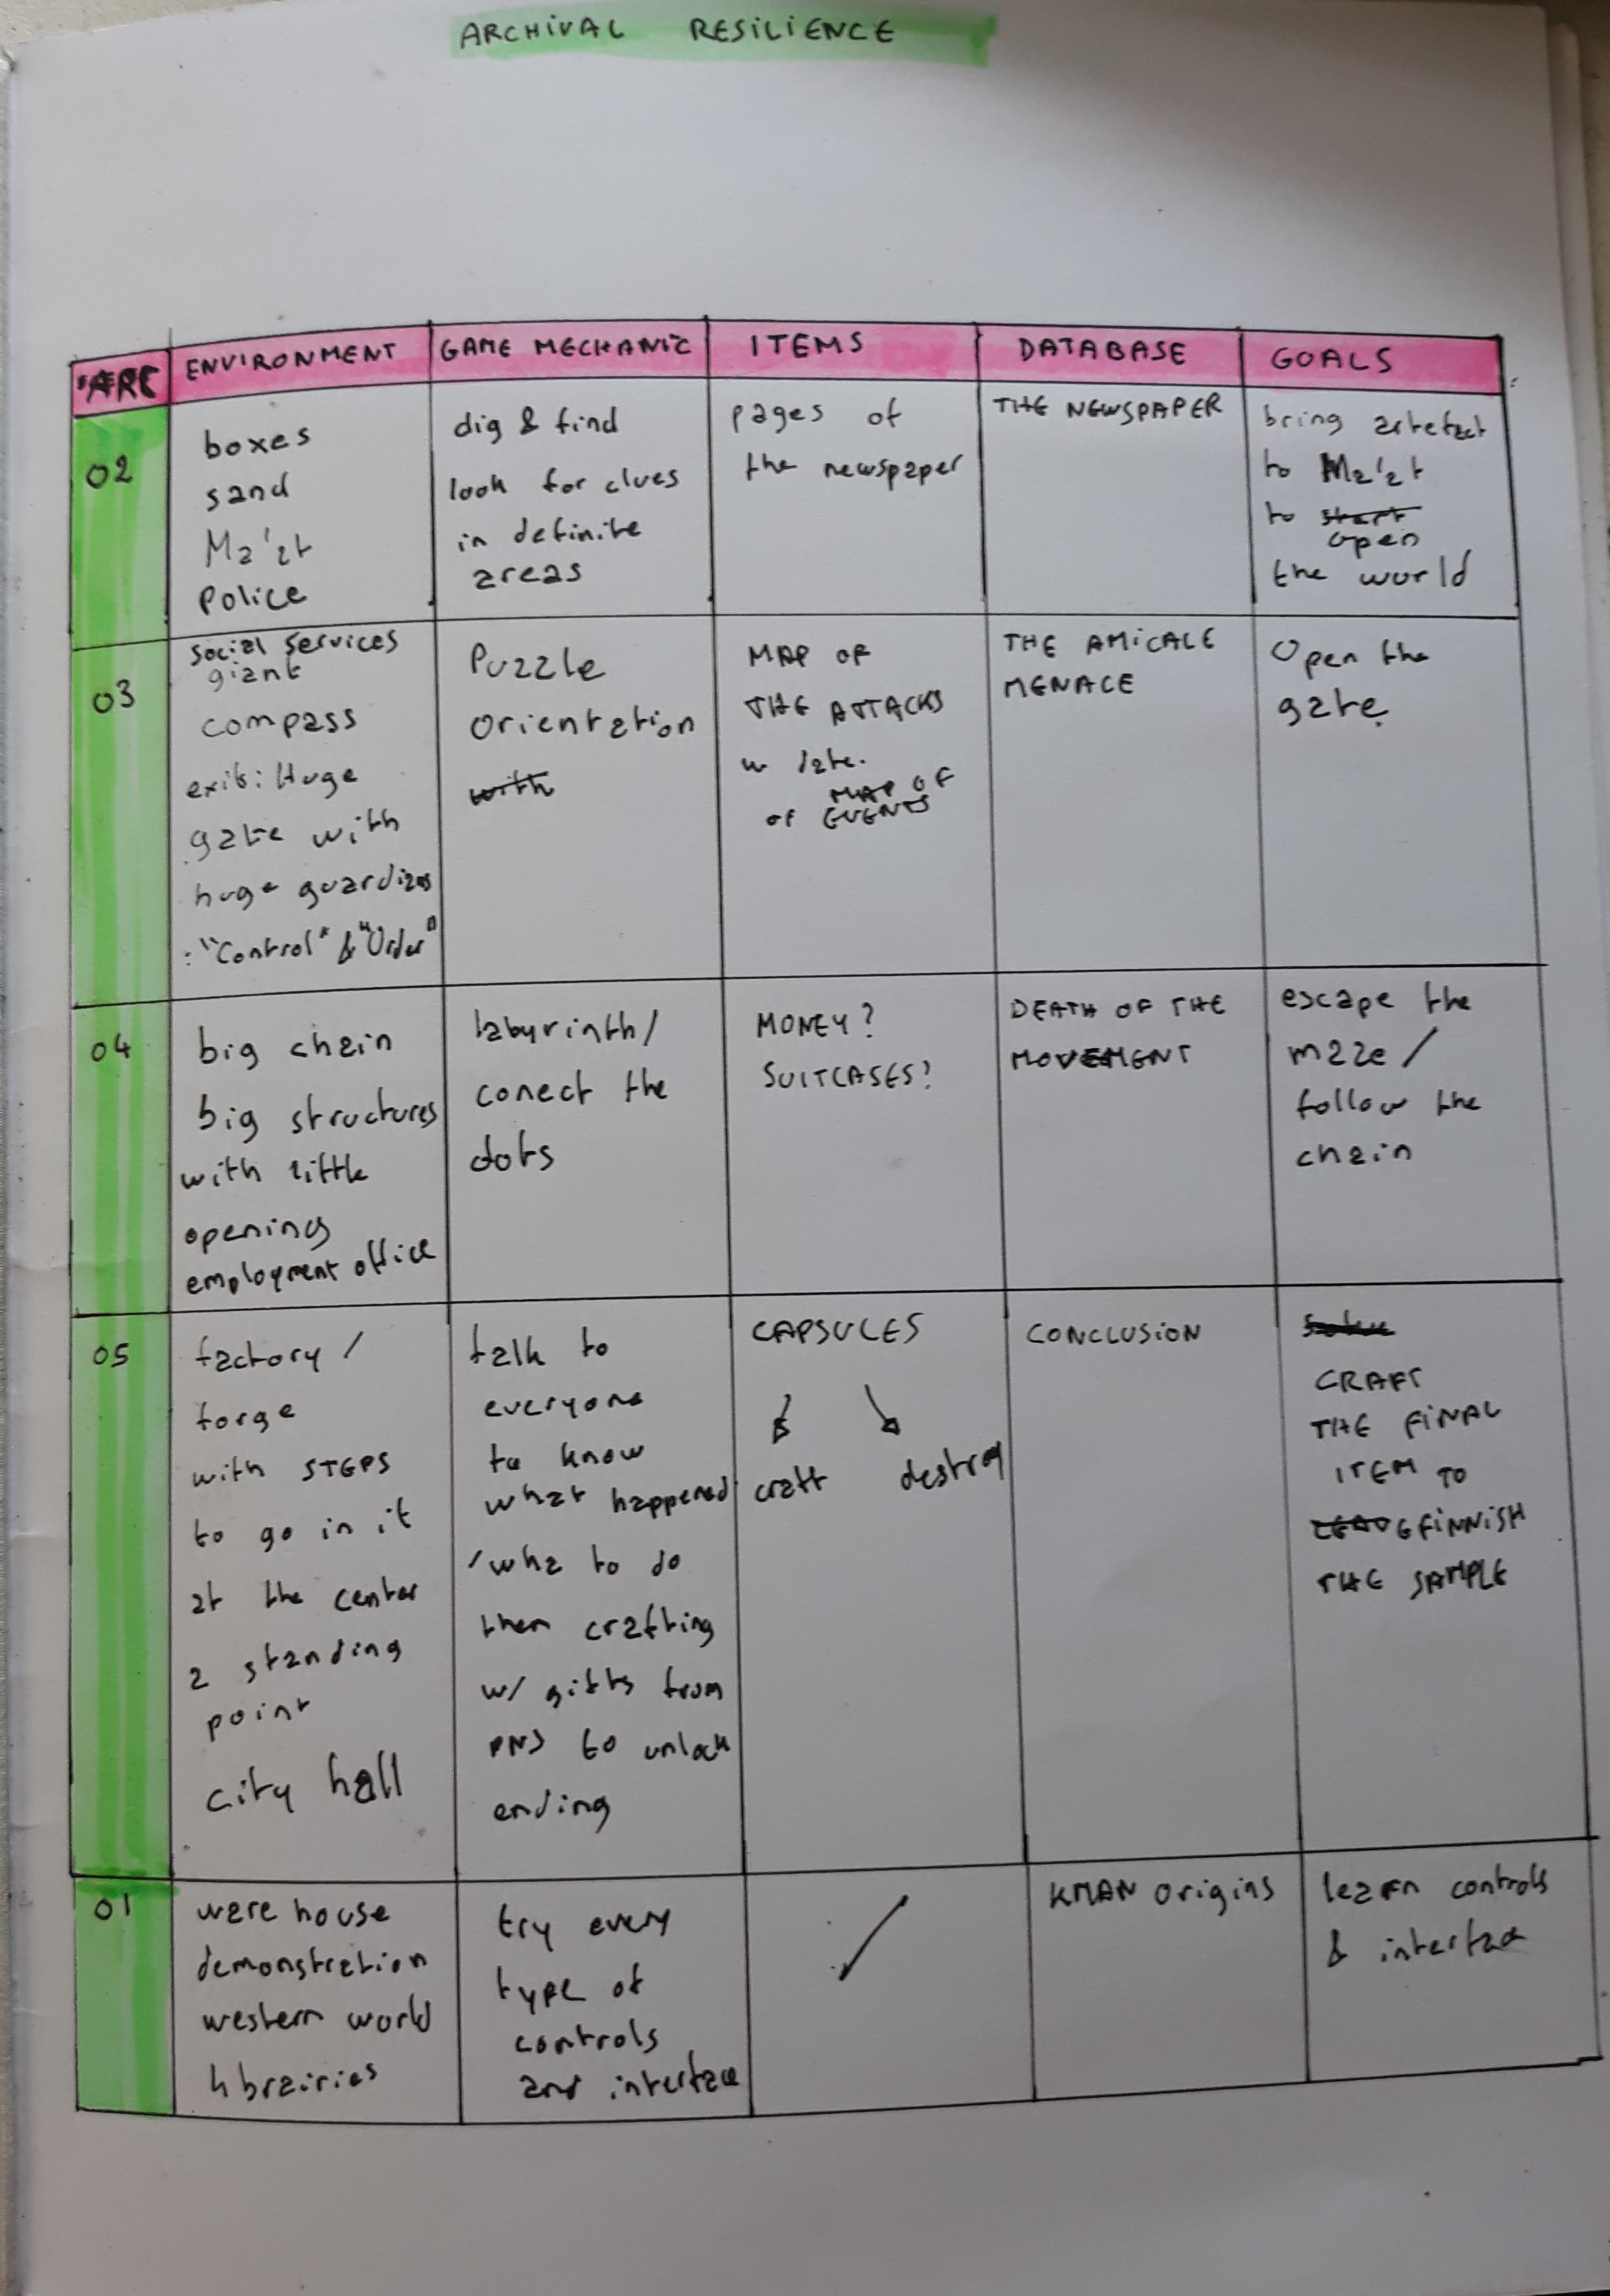 ARCHIVAL RESILIENCE
ARC
ENVIRONMENT
GAME MECHANIC
ITEMS
DATABASE
GOALS
02
boxes
sand
Ma'at
Police
dig & find
look for clues
in definite
areas
pages of
the newspaper
THE NEWSPAPER
bring artefact
to Ma'at
to start
open
the world
03
social services
giant
compass
exit: Huge
gate with
huge guardians
: "Control" & "Order"
Puzzle
Orientation
with
MAP OF
THE ATTACKS
w date.
MAP OF
OF EVENTS
THE AMICALE
MENACE
Open the
gate
04
big chain
big structures
with little
openings
employment office
labyrinth/
conect the
dots
MONEY?
SUITCASES?
DEATH OF THE
MOVEMENT
escape the
maze /
follow the
chain
05
factory /
forge
with STEPS
to go in it
at the center
a standing
point
city hall
talk to
everyone
to know
what happened
/wha to do
then crafting
w/ gifts from
PNJ to unlock
ending
CAPSULES
craft destroy
CONCLUSION
CRAFT
THE FINAL
ITEM TO
FINNISH
THE SAMPLE
01
ware house
demonstration
western world
librairies
try every
type of
controls
and interface
KMAN origins
learn controls
& interface